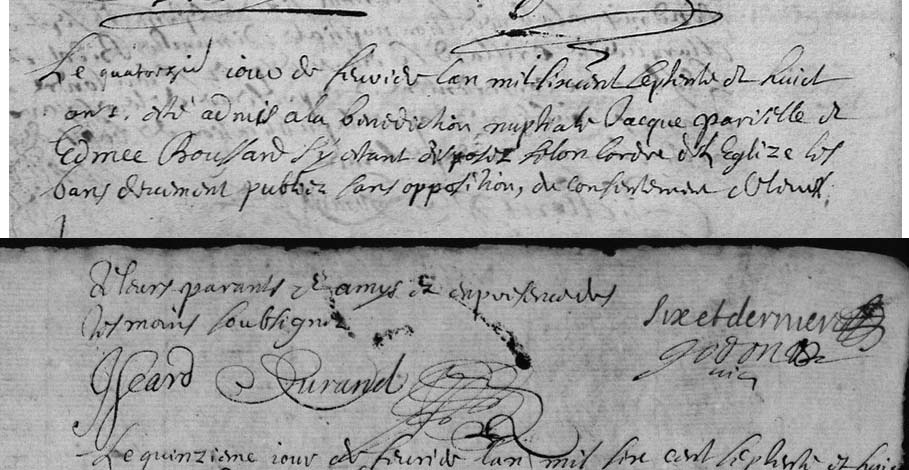 Le quatorzie jour de feuvide lan mil sixcent septente et huict
ont, esté admis a la benediction nuptiale Jacque parisille et
Edmee Boussard s'y estant disposez selon lordre de l'Eglize les
bans deuement publiez sans opposition, du consentement de leurs
Et leurs parants et amys et en presence des
tesmoins soubsignez
Sixet dernier
godon
Isseard Durand
Le quinziene iour de feuvride lan mil six cent septente et huict